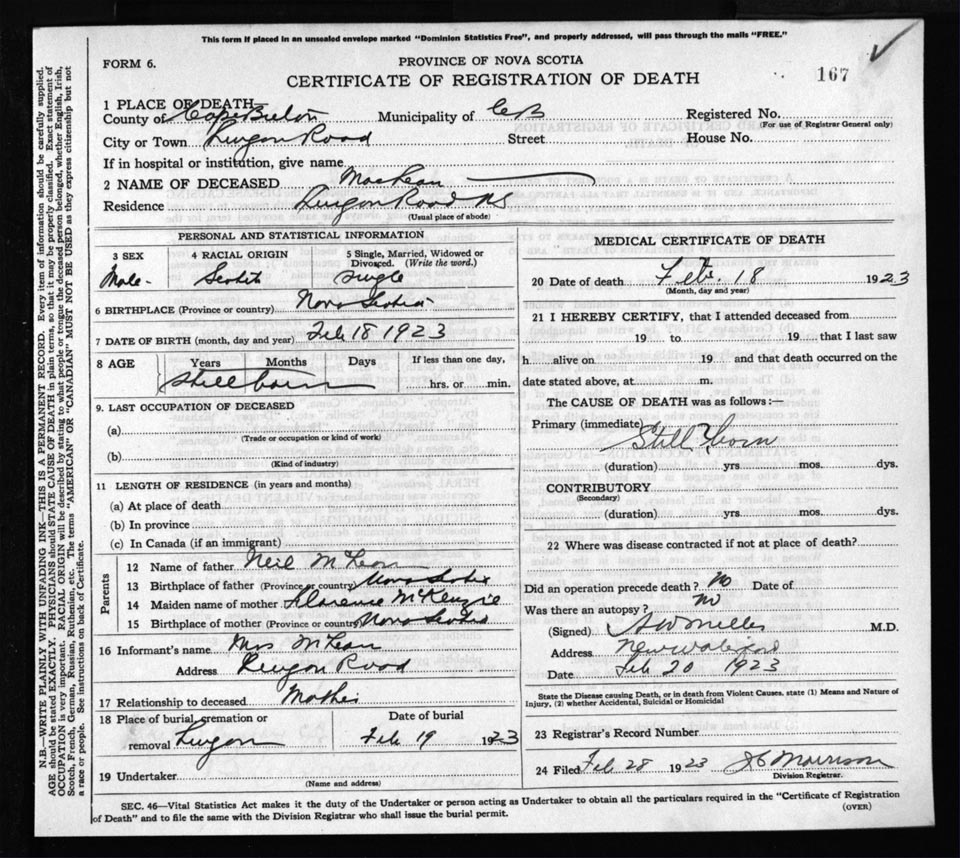 This form if placed in an unsealed envelope marked "Dominion Statistics Free", and properly addressed, will pass through the mails "FREE."
FORM 6.
PROVINCE OF NOVA SCOTIA
CERTIFICATE OF REGISTRATION OF DEATH
167
1 PLACE OF DEATH
County of Cape Breton Municipality of CB Registered No.
(For use of Registrar General only)
City or Town Road Street House No.
If in hospital or institution, give name
2 NAME OF DECEASED MacLean
Residence Road NS
(Usual place of abode)
PERSONAL AND STATISTICAL INFORMATION
3 SEX 4 RACIAL ORIGIN 5 Single, Married, Widowed or Divorced. (Write the word.)
Male Scotch Single
6 BIRTHPLACE (Province or country) Nova Scotia
7 DATE OF BIRTH (month, day and year) Feb 18 1923
8 AGE Years Months Days If less than one day,
Stillborn hrs. or min.
9. LAST OCCUPATION OF DECEASED
(a)
(Trade or occupation or kind of work)
(b)
(Kind of industry)
11 LENGTH OF RESIDENCE (in years and months)
(a) At place of death
(b) In province
(c) In Canada (if an immigrant)
Parents
12 Name of father Neil McLean
13 Birthplace of father (Province or country) Nova Scotia
14 Maiden name of mother Florence McKenzie
15 Birthplace of mother (Province or country) Nova Scotia
16 Informant's name Mrs McLean
Address Road
17 Relationship to deceased Mother
18 Place of burial, cremation or Date of burial
removal Feb 19 1923
19 Undertaker
(Name and address)
MEDICAL CERTIFICATE OF DEATH
20 Date of death Feb. 18 1923
(Month, day and year)
21 I HEREBY CERTIFY, that I attended deceased from
19 to 19 that I last saw
h alive on 19 and that death occurred on the
date stated above, at m.
The CAUSE OF DEATH was as follows:—
Primary (immediate)
Still born
(duration) yrs. mos. dys.
CONTRIBUTORY
(Secondary)
(duration) yrs. mos. dys.
22 Where was disease contracted if not at place of death?
Did an operation precede death? No Date of
Was there an autopsy? No
(Signed) M.D.
Address New Waterford
Date Feb 20 1923
State the Disease causing Death, or in death from Violent Causes, state (1) Means and Nature of
Injury, (2) whether Accidental, Suicidal or Homicidal
23 Registrar's Record Number
24 Filed Feb 28 1923 Morrison
Division Registrar.
SEC. 46—Vital Statistics Act makes it the duty of the Undertaker or person acting as Undertaker to obtain all the particulars required in the "Certificate of Registration
of Death" and to file the same with the Division Registrar who shall issue the burial permit.
(OVER)
N.B.—WRITE PLAINLY WITH UNFADING INK—THIS IS A PERMANENT RECORD. Every item of information should be carefully supplied.
AGE should be stated EXACTLY. PHYSICIANS should STATE CAUSE OF DEATH in plain terms, so that it may be properly classified. Exact statement of
OCCUPATION is very important. RACIAL ORIGIN will be described by stating to what people or tongue the deceased person belonged, whether English, Irish,
Scotch, French, German, Russian, Ruthenian, etc. The terms "AMERICAN" OR "CANADIAN" MUST NOT BE USED as they express citizenship but not
a race or people. See instructions on back of Certificate.